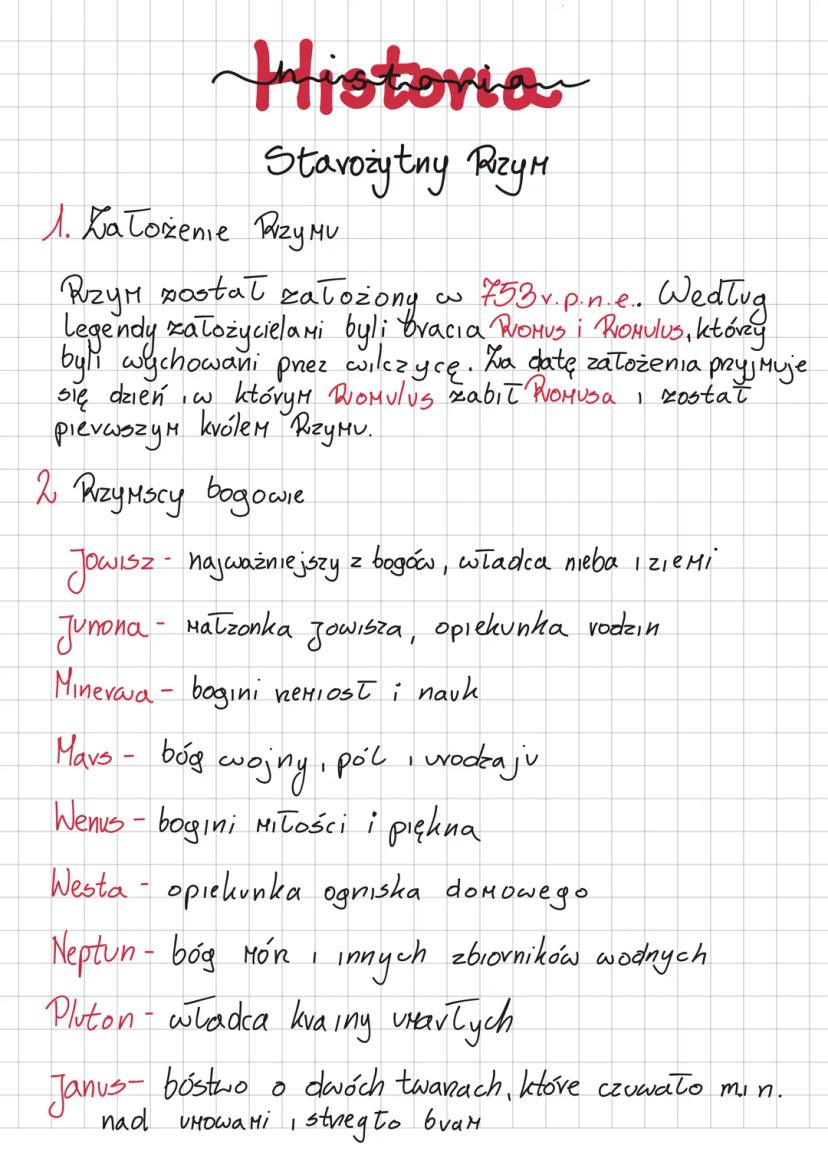 Historia
historia
Starożytny Rzym
1. Założenie Rzymu
Rzym został założony w 753 r.p.n.e.. Według
legendy założycielami byli bracia Romus i Romulus, którzy
byli wychowani przez wilczycę. Za datę założenia przyjmuje
się dzień, w którym Romulus zabił Romusa i został
pierwszym królem Rzymu.
2 Rzymscy bogowie
Jowisz - najważniejszy z bogów, władca nieba i ziemi
Junona - małzonka Jowisza, opiekunka rodzin
Minerwa - bogini rzemiosł i nauk
Mars - bóg wojny, pól i urodzaju
Wenus - bogini miłości i piękna
Westa - opiekunka ogniska domowego
Neptun - bóg mórz i innych zbiorników wodnych
Pluton - władca krainy umarłych
Janus- bóstwo o dwóch twarzach, które czuwało m.in.
nad umowami i strzegło bram